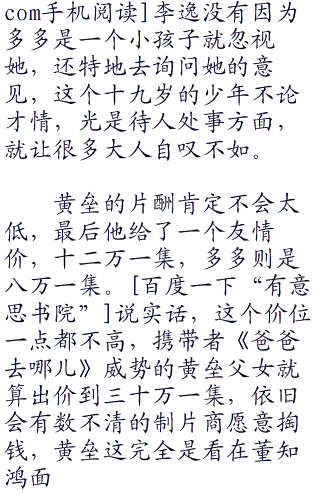 com手机阅读]李逸没有因为
多多是一个小孩子就忽视
她，还特地去询问她的意
见，这个十九岁的少年不论
才情，光是待人处事方面，
就让很多大人自叹不如。
黄垒的片酬肯定不会太
低，最后他给了一个友情
价，十二万一集，多多则是
八万一集。[百度一下“有意
思书院”]说实话，这个价位
一点都不高，携带者《爸爸
去哪儿》威势的黄垒父女就
算出价到三十万一集，依旧
会有数不清的制片商愿意掏
钱，黄垒这完全是看在董知
鸿面